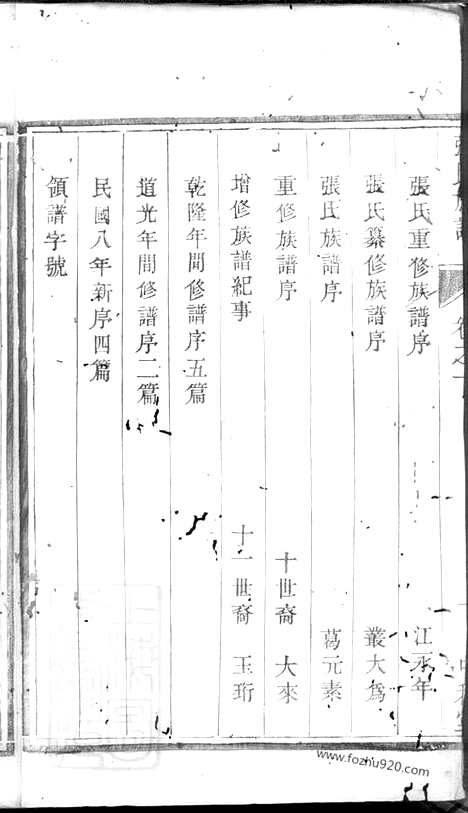 張氏重修族譜序 江永年
張氏纂修族譜序 叢大為
張氏族譜序 葛元素
重修族譜序 十世裔 大來
增修族譜紀事 十一世裔 玉珩
乾隆年間修譜序五篇
道光年間修譜序二篇
民國八年新序四篇
領譜字號
www.fozhu920.com